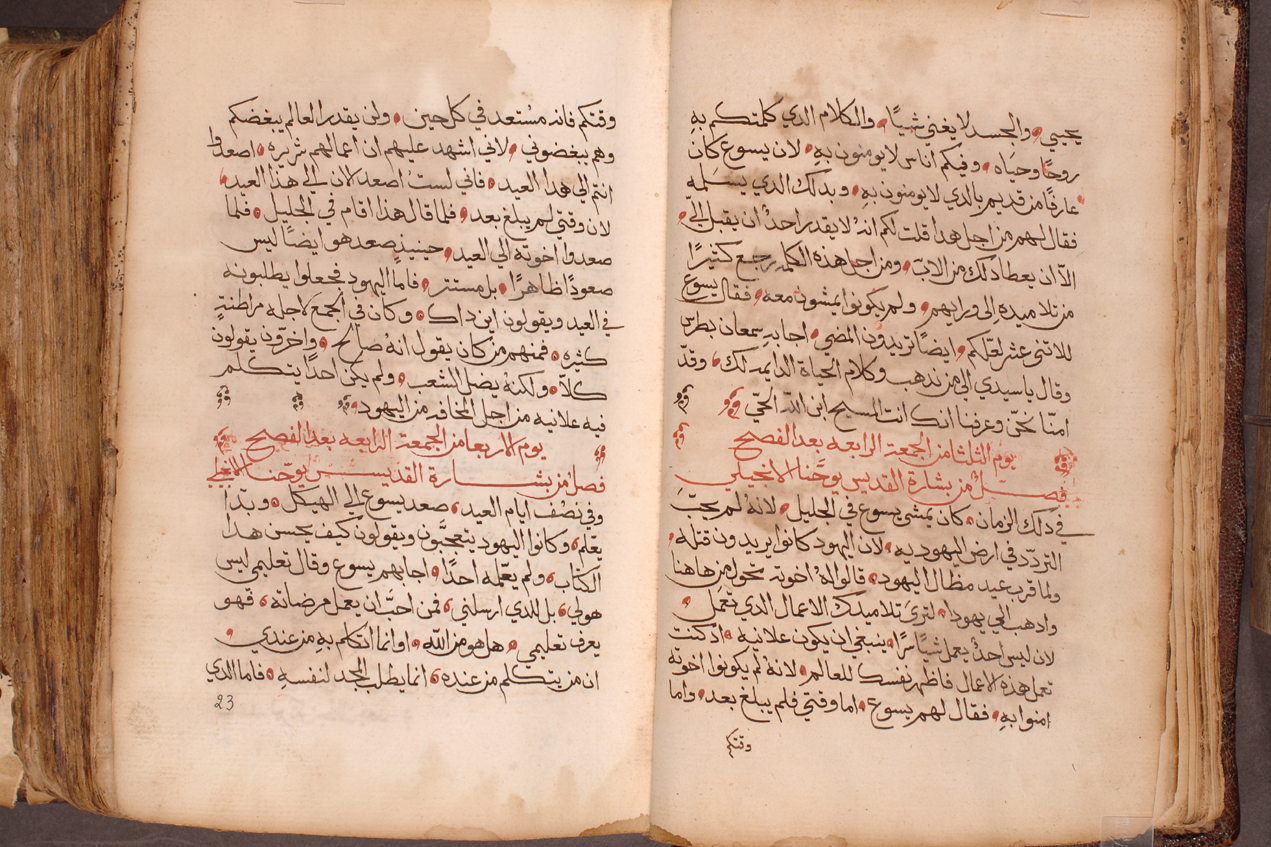 يحيي، والجسد لا يغني شياً، والكلام الدي كلمتكم به
روحاً وحياه، وفيكم اناس لا يومنون به، لان يسوع كان
عارفاً من قديم بالدي لا يومنون به، وبدلك الدي يسلمه
فقال لهم من اجل هدا قلت لكم انه لا يقدر احدٌ ان يقبل اليّ،
الاّ ان يعطا دلك من الاب، ومن اجل هذه الكلمه رجع كثيرًا
من تلاميده الى ورايهم، ولم يكونوا يمشون معه، فقال يسوع
للاتنى عشر لعلكم، ايضاً تريدون المضي، اجابه سمعان بطرس
وقال يا سيدي الى من ندهب وكلام الحياة الدايمه لك، وقد
امنّا نحن وعرفنا انك انت المسيح ابن الله الحيّ
يوم الثلثا من الجمعة الرابعه بعد الفصيح
فصل من بشارة القديس يوحنا الانجيلي
في دلك الزمان، كان يمشي يسوع في الجليل، لانه لم يحبّ
التردّد في ارض اليهوديه، لان اليهود كانوا يريدون قتله،
ولما قرب عيد مظال اليهود، قالوا له اخوته تحول من هاهنا
وادهب الي يهودا، لترى تلاميدك الاعمال الدي تعمل،
لان ليس احدٌ يعمل شياً سرًا، ينبغي ان يكون علانية، ادكنت
تعمل هذه الاعمال فاظهر نفسك للعالم، لانه لم يكونوا اخوته
امنوا به، فقال لهم يسوع، اما وقتي فلم يبلغ بعد، واما
وقتكم
وقتكم فانه مستعد في كل حين، ولن يقدر العالم يبغضكم
وهم يبغضوني، لاني اشهد عليهم ان اعمالهم شريره، اصعدوا
انتم الى هدا العيد، فاني لستُ اصعد لان الى هذا العيد،
لان وقتي لم يبلغ بعد، فلما قال هذا اقام في الجليل، فلما
صعدوا اخوته الي العيد، حينيذٍ صعد هو ايضاً ليس
صعودًا ظاهرًا، بل مستتر، فاما اليهود فجعلوا يطلبونه
في العيد ويقولون اين داك، وكان في الجمع لاجله مراطنةٍ
كثيره، فمنهم من كان يقول انه صالح، واخرون يقولون
كلا، ولكنه يضل الشعب، ولم يكن احداً يتكلم
فيه علانيه من اجل المخافه من اليهود،
يوم الاربعا من الجمعة الرابعه بعد الفصيح
فصل من بشارة القديس يوحنا الانجيلي
وفي نصف ايام العيد، صعد يسوع الى الهيكل، وبدا
يعلم، وكانوا اليهود يتعجبون ويقولون كيف يحسن هدا
الكتاب، ولم يعلمه احداً، اجابهم يسوع وقال تعليمي ليس
هو لي، بل للدي ارسلني، فمن احبّ ان يعمل مرضاته، فهو
يعرف تعليمي، هل هو من الله، او انما اتكلم به من عندي،
ان من يتكلم من عنده، انما يطلب المجد لنفسه، فاما الدي
23